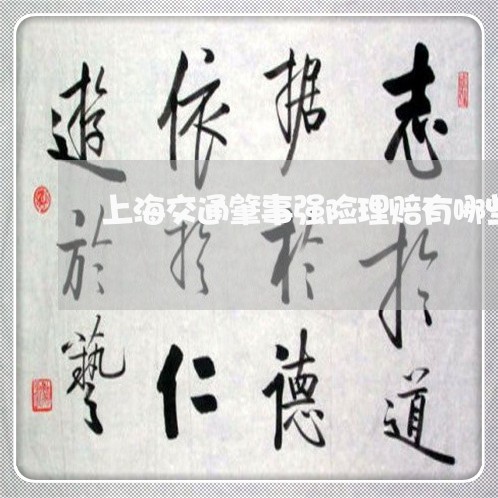 志於道
据於德
依於仁
遊於藝
上海交通肇事强险理赔有哪